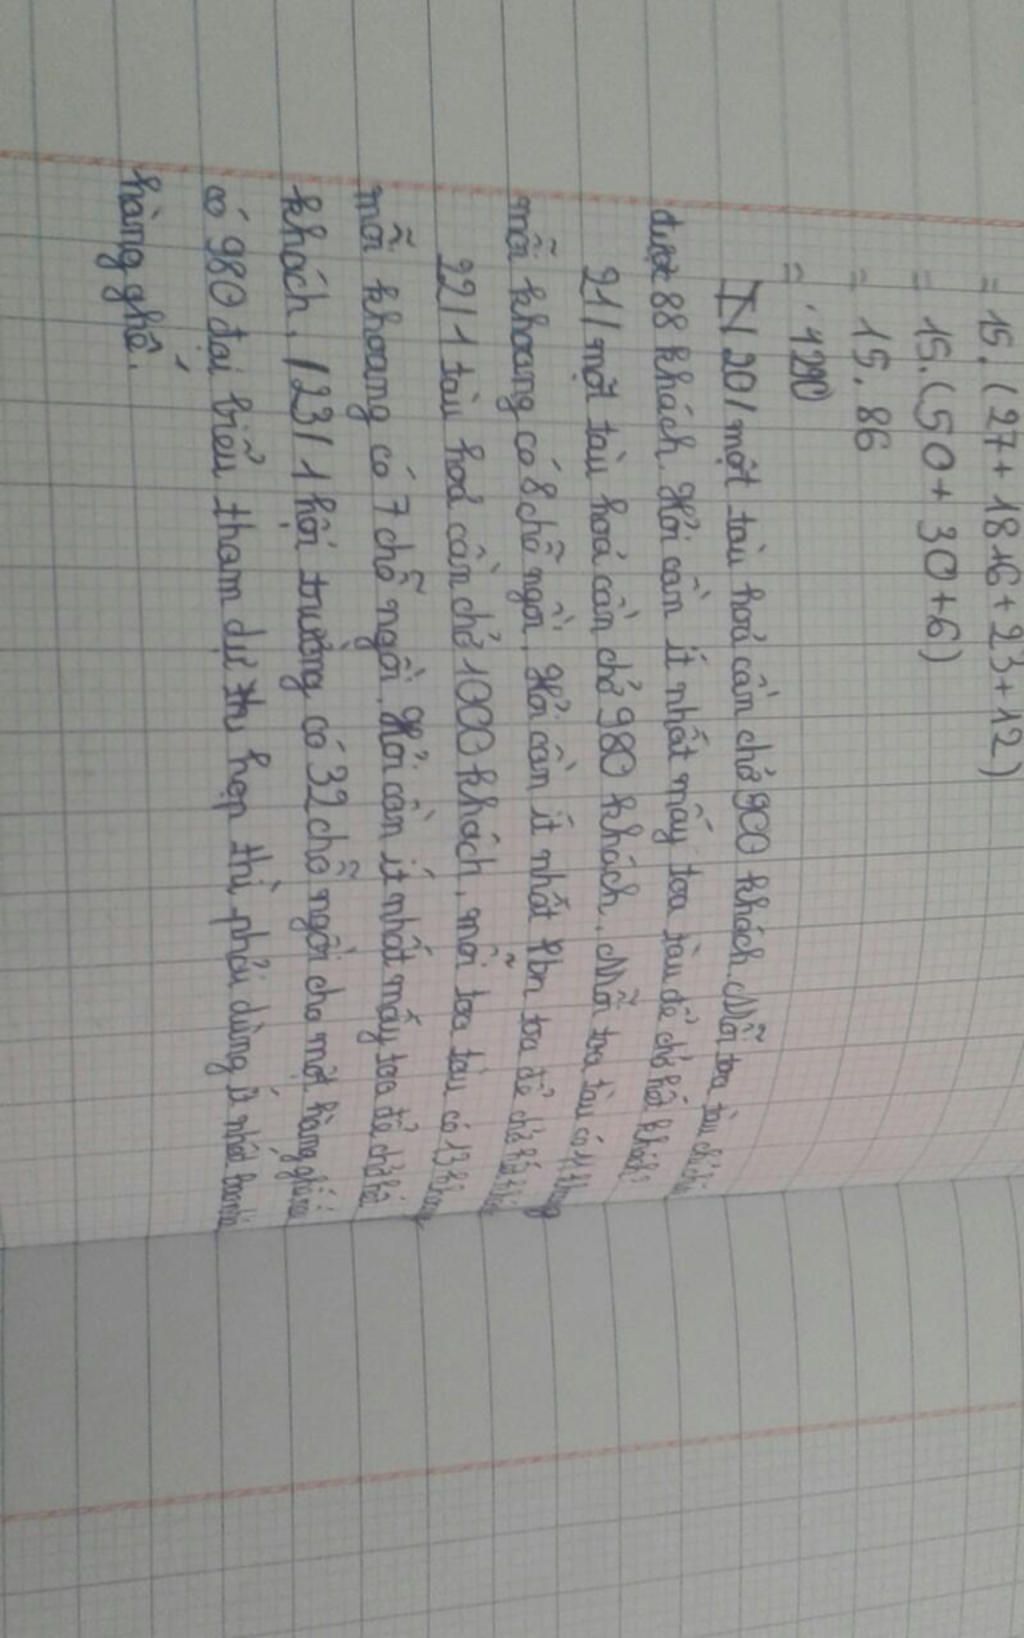 = 15. (27 + 18 16 + 23 + 12)
= 15. (50 + 30 + 6)
= 15. 86
= 1290
IV 20/ một tàu hoả cần chở 900 khách. Mỗi toa tàu chỉ chở
được 88 khách. Hỏi cần ít nhất mấy toa tàu để chở hết khách?
21/ một tàu hoả cần chở 980 khách. Mỗi toa tàu có 11 khoang
mỗi khoang có 8 chỗ ngồi. Hỏi cần ít nhất toa để chở hết
22/ 1 tàu hoả cần chở 1000 khách, mỗi toa tàu có 13 khoang
mỗi khoang có 7 chỗ ngồi. Hỏi cần ít nhất mấy toa để chở hết
khách. / 23/ 1 hội trường có 32 chỗ ngồi cho một hàng ghế
có 980 đại biểu tham dự họp thì phải dùng ít nhất
hàng ghế.